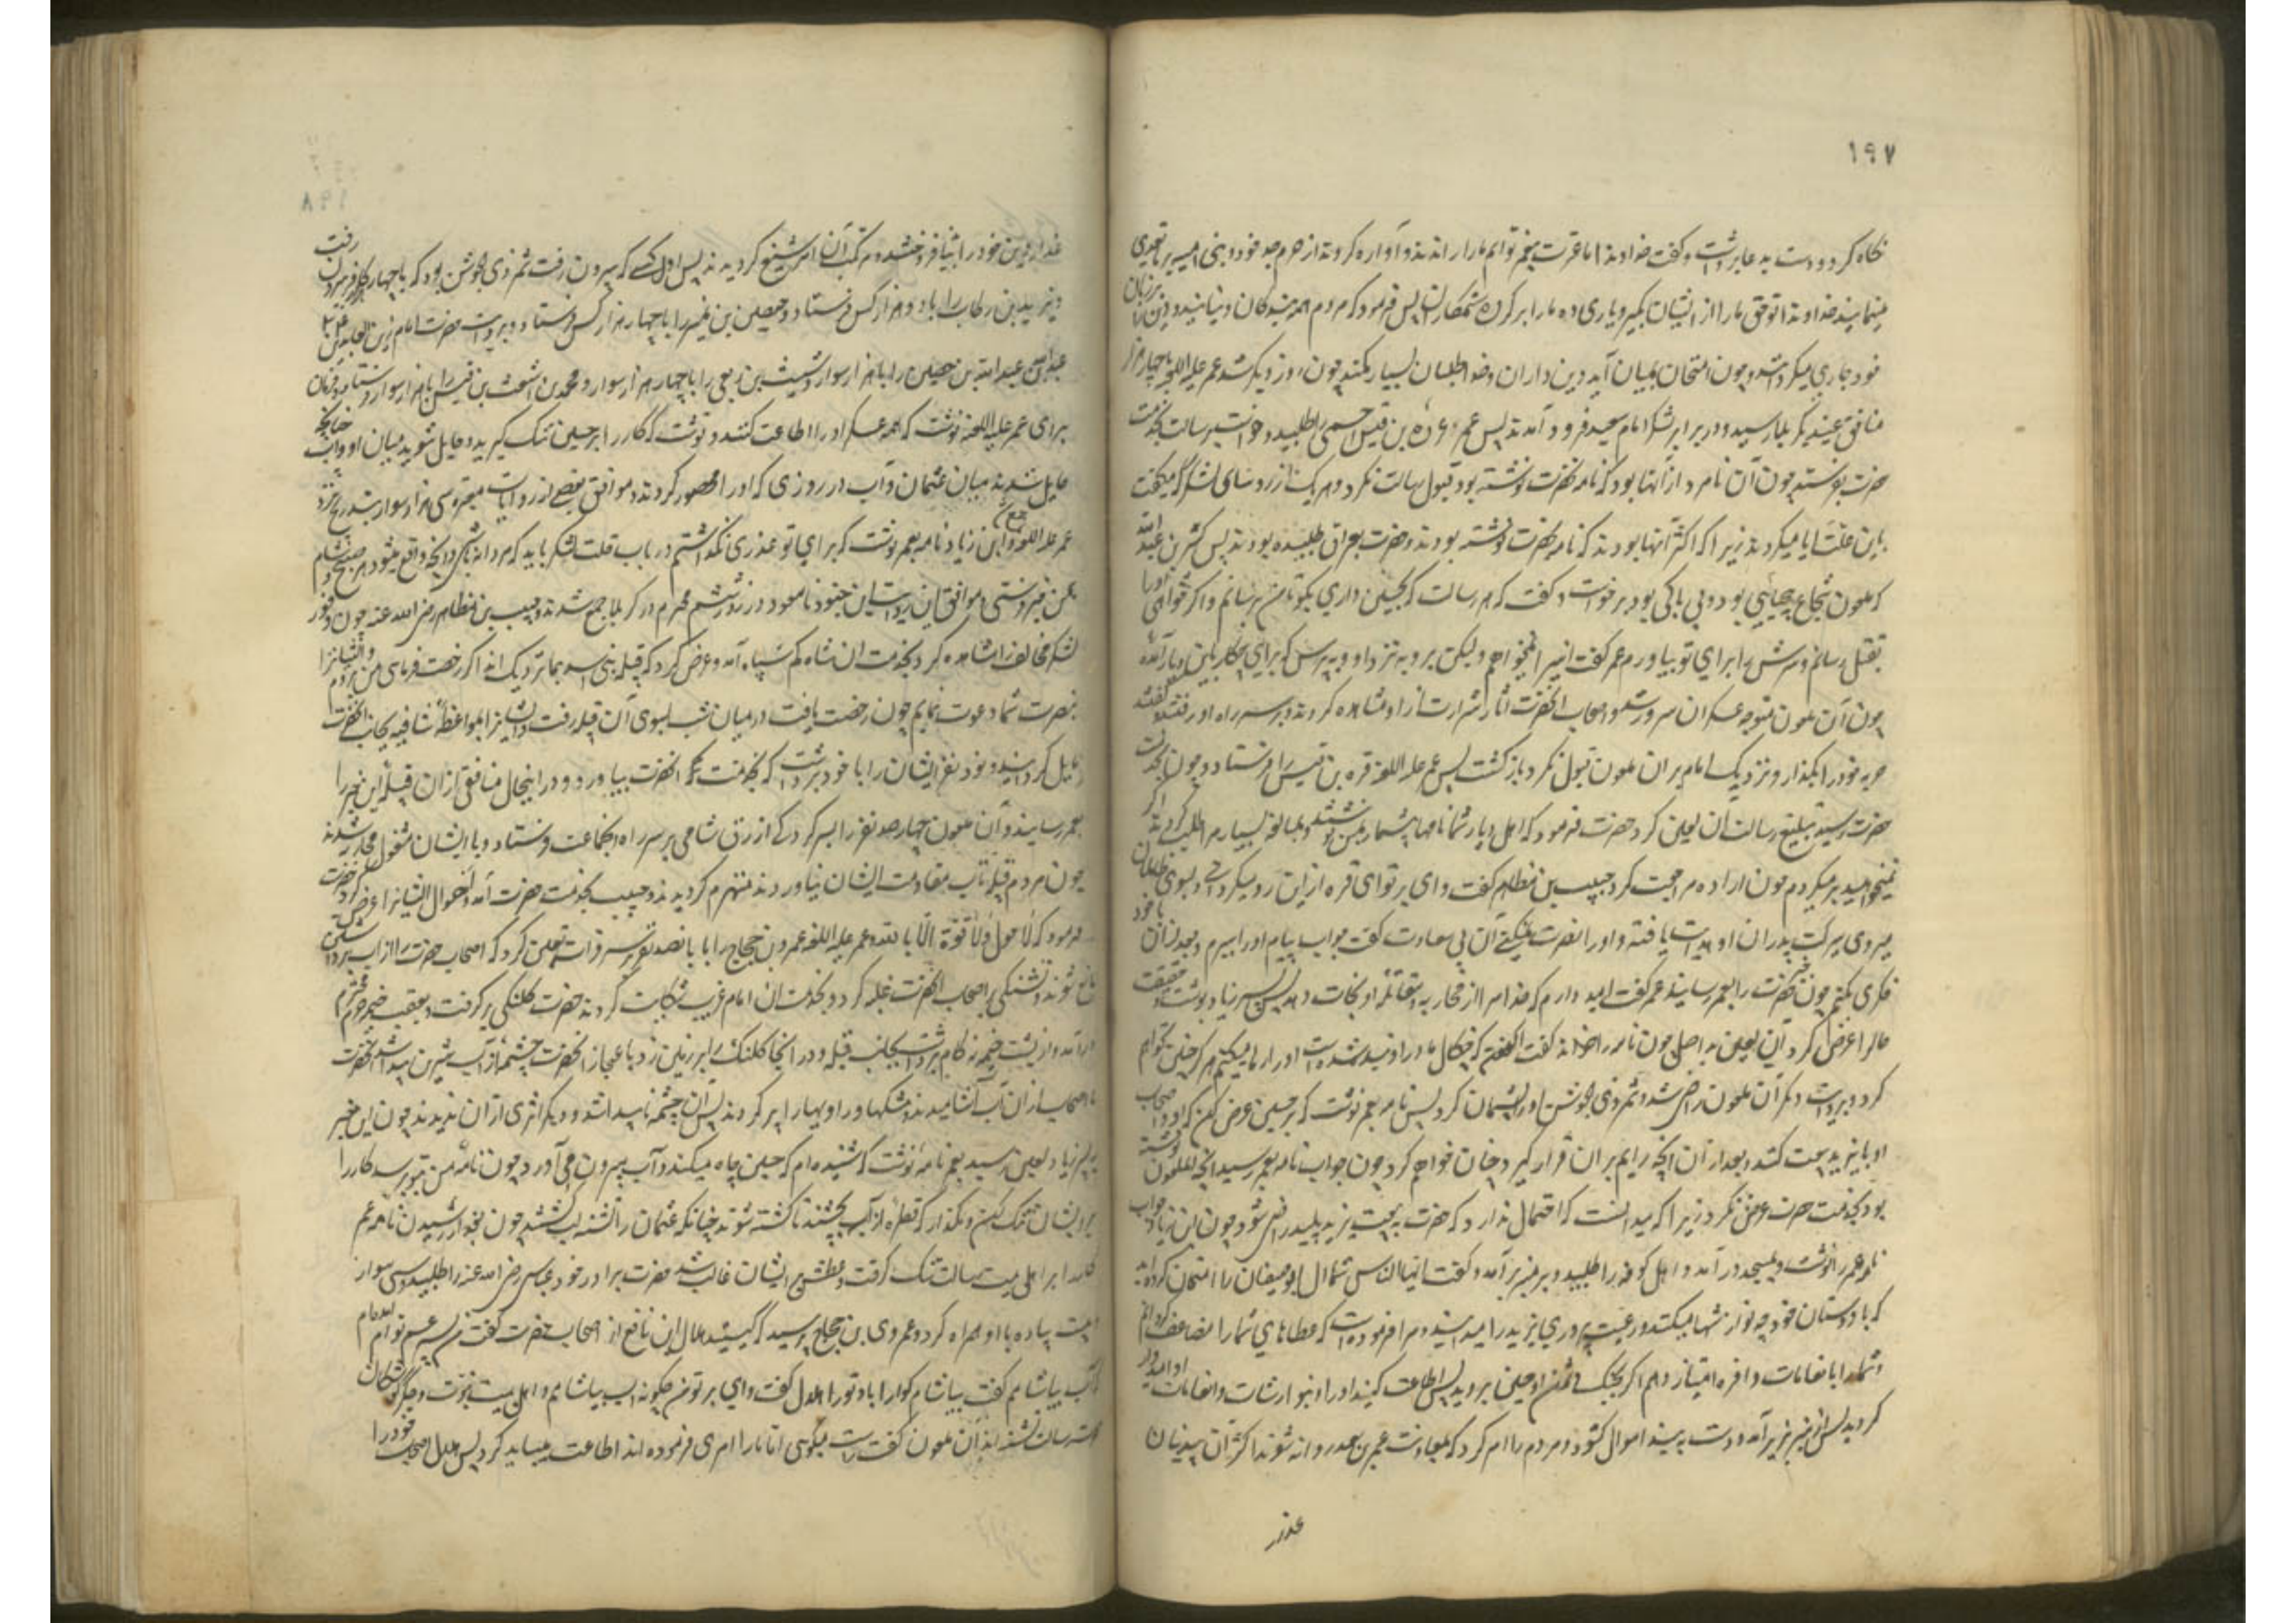 ۱۹۷
نگاه کرد و دست به دعا برداشت و گفت خداوندا ما عترت پیغمبر توایم ما را راندند و آواره کردند از حرم جد خود و بنی امیه بر ما تعدی
مینمایند خداوندا تو حق ما را از ایشان بگیر و یاری ده ما را بر گروه ستمکاران پس فرمود که مردم همه بندگان دنیایند و دین را بر زبان
خود جاری میکردانند و چون امتحان بمیان آید دین داران و خدا طلبان بسیار کمند چون روز دیگر شد عمر علیه اللعنه با چهار هزار
منافق عنید بکربلا رسید و در برابر لشکر امام سعید فرود آمدند پس عمر عروه بن قیس احمسی را طلبید و خواست برسالت بخدمت
حضرت بفرستد چون آن نامرد از آنها بود که نامه بحضرت نوشته بود قبول رسالت نکرد و هر یک از رؤسای لشکر که میگفت
باین علت ابا میکردند زیرا که اکثر آنها بودند که نامه بحضرت نوشته بودند و حضرت را بعراق طلبیده بودند پس کثیر بن عبد الله
که ملعون شجاع بود و بی باکی بود برخواست و گفت که هر رسالت که بحسین داری بگو تا من برسانم و اگر خواهی او را
بقتل رسانم و سرش را برای تو بیاورم عمر گفت این را نمیخواهم ولیکن برو به نزد او و بپرس که برای چه کار باین دیار آمده
چون آن ملعون متوجه عسکر آن سرور شد و اصحاب آنحضرت آثار شرارت از او مشاهده کردند و بر سر راه او رفتند و گفتند
حربه خود را بگذار و نزدیک امام بر آن ملعون قبول نکرد و بازگشت پس عمر علیه اللعنه قره بن قیس را فرستاد و چون بخدمت
حضرت رسید تبلیغ رسالت آن لعین کرد حضرت فرمود که اهل دیار شما نامهای بیشمار بمن نوشتند و بمبالغه بسیار مرا طلب کردند اگر
نمیخواهید بر میگردم چون اراده مراجعت کرد حبیب بن مظاهر گفت وای بر تو ای قره از این رو میگردانی و بسوی ظالمان
میروی ببرکت پدران او هدایت یافته و او را نصرت نمیکنی آن بی سعادت گفت جواب پیام او را ببرم و بعد از آن با خود
فکری بکنم چون خبر حضرت را بعمر رسانید عمر گفت امید دارم که خدا مرا از محاربه و مقاتله او نجات دهد پس بسر زیاد نوشت و حقیقت
حال را عرض کرد آن لعین بد اصل چون نامه را خواند گفت الحال که چنگال ما در او بند شده است او را رها میکنیم
کرد و دیگر آن ملعون راضی شد و شمر ذی الجوشن او را پشیمان کرد پس نامه بعمر نوشت که بر حسین عرض کن که او و اصحاب
او با یزید بیعت کنند و بعد از آن آنچه رایم بر آن قرار گیرد چنان خواهم کرد چون جواب نامه بعمر رسید آنچه آن ملعون نوشته
بود بخدمت حضرت عرض نکرد زیرا که میدانست که احتمال ندارد که حضرت به بیعت یزید پلید راضی شود چون ابن زیاد جواب
نامه عمر را نوشت و بمسجد در آمد و اهل کوفه را طلبید و بر منبر برآمد و گفت ایها الناس شما آل ابوسفیان را امتحان کرده اید
که با دوستان خود چه نوازشها میکنند و رعیت پروری یزید را میدانید و مرا فرموده است که عطاهای شما را مضاعف گردانم
و شما را بانعامات وافره امتیاز دهم اگر بجنگ دشمن او حسین بروید پس اطاعت کنید او را و بنوازشات و انعامات او امیدوار
گردید پس از منبر بزیر آمد و دست به بیند اموال گشود و مردم را امر کرد که بمعاونت عمر بن سعد روانه شوند اکثر آن بیدینان
غدار
غدار دین خود را بدنیا فروختند و مرتکب آن امر شنیع گردیدند پس اول کسی که بیرون رفت شمر ذی الجوشن بود که با چهار هزار کافر بیرون رفت
و یزید بن رکاب را با دو هزار کس فرستاد و حصین بن نمیر را با چهار هزار کس فرستاد و بروایت حضرت امام زین العابدین ع
عبد الله بن حصین را با هزار سوار و شیث بن ربعی را با چهار هزار سوار و محمد بن اشعث بن قیس را با هزار سوار فرستاد و فرمان
برای عمر علیه اللعنه نوشت که همه عسکر او را اطاعت کنند و نوشت که کار را بر حسین تنک گیرید و حایل شوید میان او و آب چنانچه
حایل شدند میان عثمان و آب در روزی که او را محصور کردند و موافق بعضی از روایات معتبره سی هزار سوار بتدریج نزد
عمر علیه اللعنه جمع و ابن زیاد نامه بعمر نوشت که برای تو عذری نگذاشتم در باب قلت لشکر باید که مردانه باشی و آنچه واقع میشود هر صبح و شام
بمن میفرستی و موافق این روایت این جنود نامعدود در روز ششم محرم در کربلا جمع شدند و حبیب بن مظاهر رضی الله عنه چون وفور
لشکر مخالف را مشاهده کرد بخدمت آن شاه کم سپاه آمد و عرض کرد که قبیله بنی اسد بما نزدیک اند اگر رخصت فرمائی من بروم و ایشانرا
بنصرت شما دعوت نمایم چون رخصت یافت در میان شب بسوی آن قبیله رفت و ایشانرا بمواعظ شافیه بجانب آنحضرت
مایل گردانید و نود نفر ایشان را با خود برداشت که بخدمت آنحضرت بیاورد و در اینحال منافقی از آن قبیله این خبر را
بعمر رسانید و آن ملعون چهارصد نفر را بسرکردگی ازرق شامی بر سر راه آنجماعت فرستاد و با ایشان مشغول محاربه شدند
چون مردم قبیله تاب مقاومت ایشان نیاوردند منهزم گردیدند و حبیب بخدمت حضرت آمد و احوال ایشانرا عرض کرد حضرت
فرمود که لا حول ولا قوة الا بالله و عمر علیه اللعنه عمرو بن حجاج را با پانصد نفر بر سر فرات تعیین کرد که اصحاب حضرت را از آب برداشتن
مانع شوند و تشنگی بر اصحاب آنحضرت غلبه کرد و بخدمت آن امام غریب شکایت کردند حضرت کلنگی برگرفت و بعقب خیمه حرم محترم
درآمد و از پشت خیمه نه گام برداشت بجانب قبله و در آنجا کلنگ را بر زمین زد باعجاز آنحضرت چشمه از آب شیرین پیدا شد آنحضرت
با اصحاب از آن آب آشامیدند و مشکها و راویها را پر کردند پس آن چشمه ناپیدا شد و دیگر اثری از آن ندیدند چون این خبر
به پسر زیاد لعین رسید بعمر نامه نوشت که شنیده ام که حسین چاه میکند و آب بیرون می آورد چون نامه من بتو رسد کار را
بر ایشان تنک کن و مگذار که قطره از آب بچشند تا کشته شوند چنانکه عثمان را تشنه لب کشتند چون بخواندن رسید آن نامه عمر
کار را بر اهل بیت رسالت تنک گرفت و عطش بر ایشان غالب شد حضرت برادر خود عباس رضی الله عنه را طلبید و سی سوار
و بیست پیاده با او همراه کرد و عمرو بن حجاج پرسید که کیستید هلال بن نافع از اصحاب حضرت گفت من پسر عم توام آمده ام
که آب بیاشامم گفت بیاشام گوارا باد تو را هلال گفت وای بر تو من چگونه آب بیاشامم و اهل بیت نبوت و جگرگوشگان
رسالت تشنه اند آن ملعون گفت راست میگوئی اما ما را امری فرموده اند اطاعت میباید کرد پس هلال اصحاب خود را